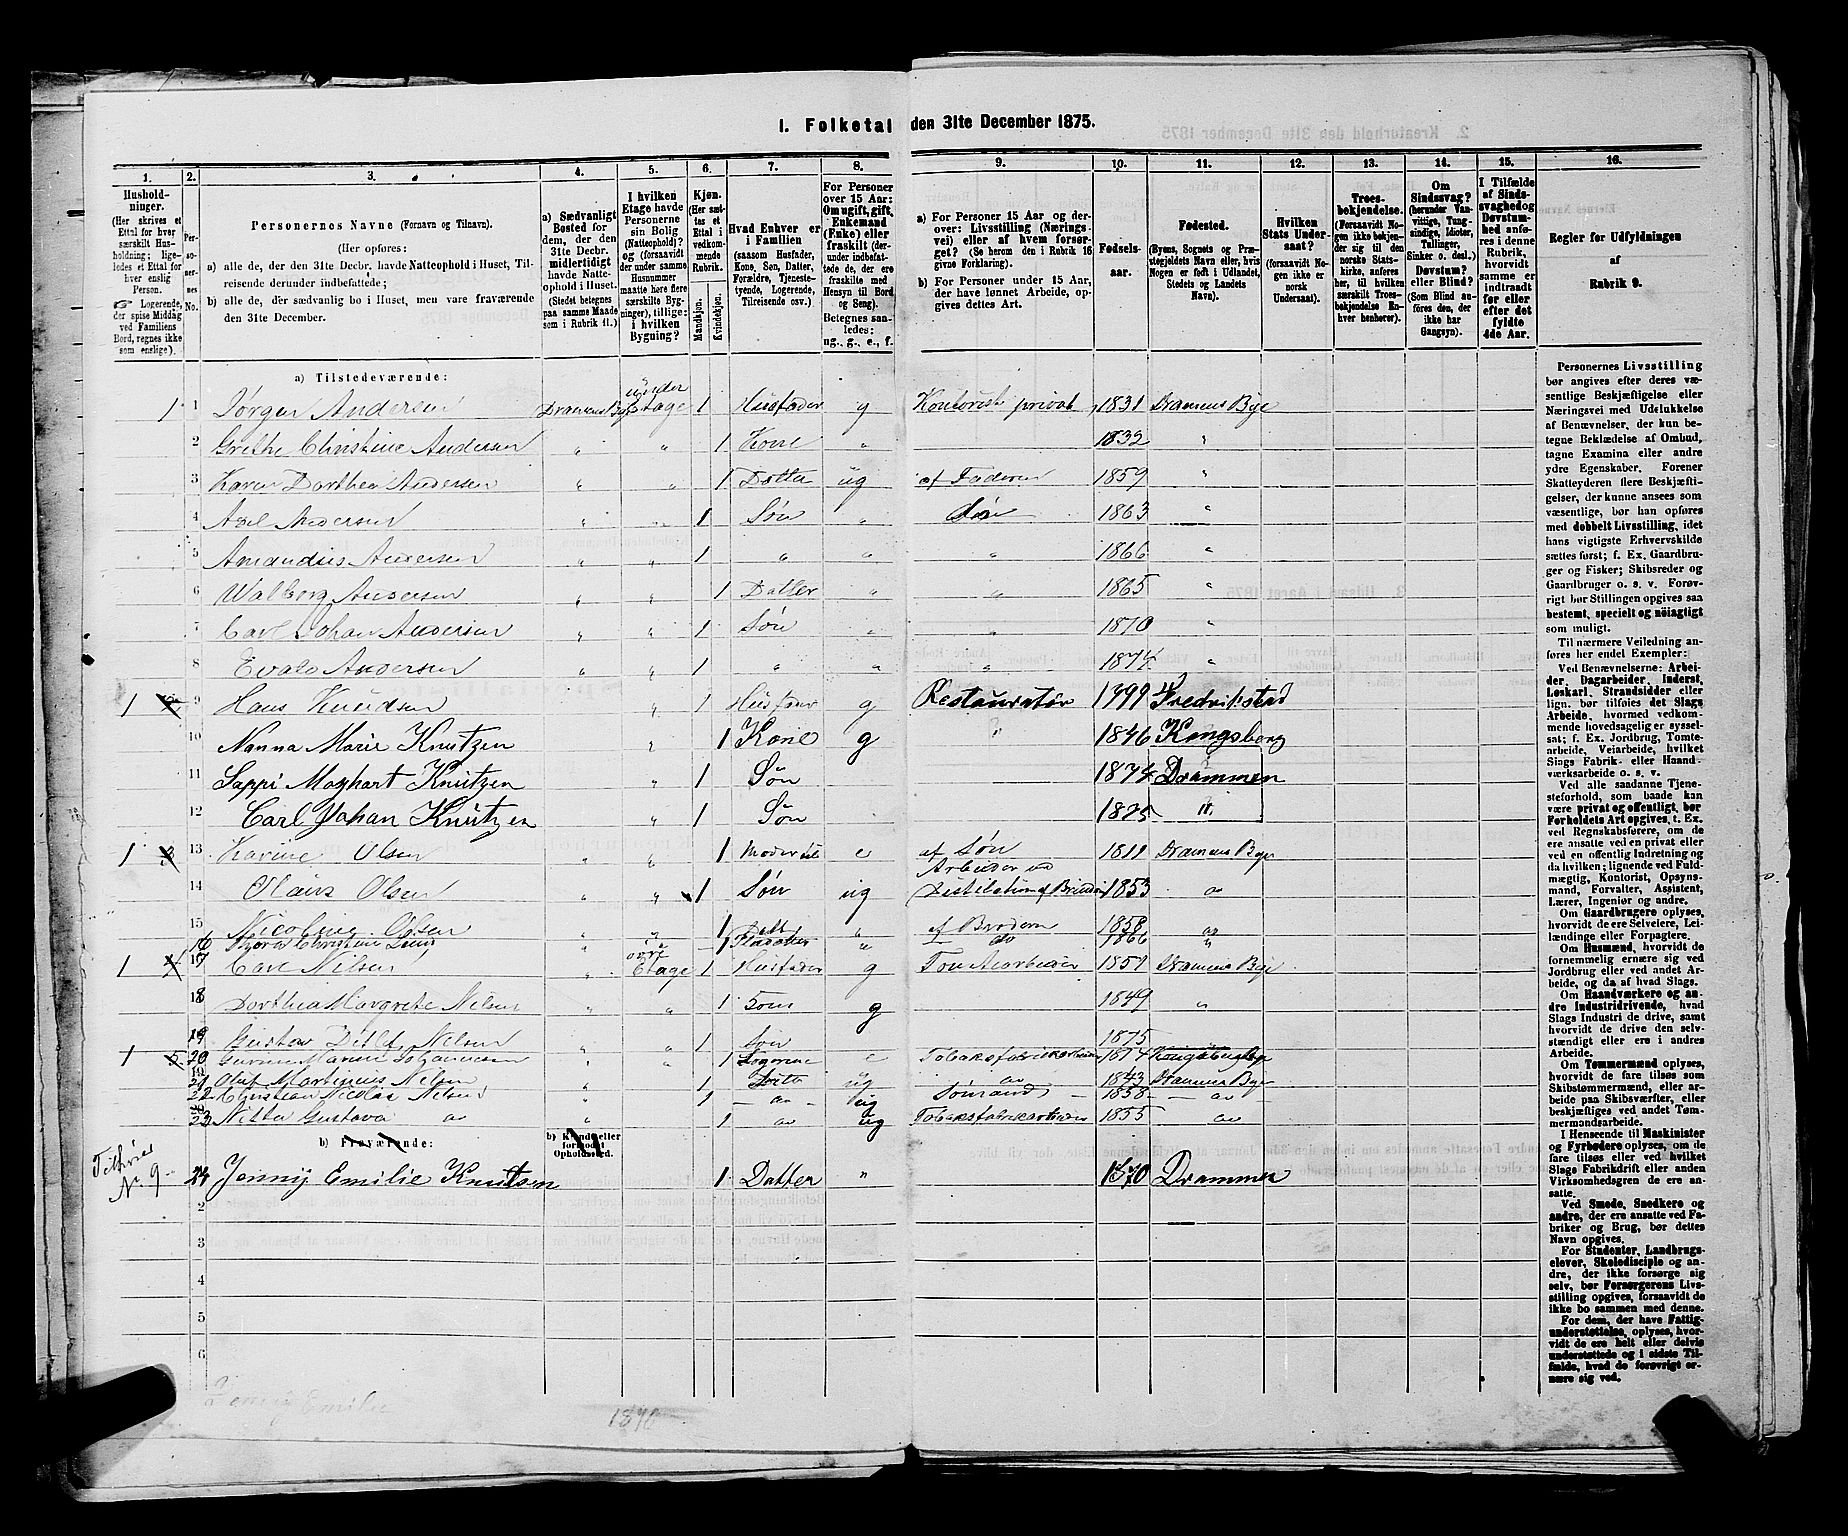 I. Folketal den 31te December 1875.
1. 2. 3. 4. 5. 6. 7. 8. 9. 10. 11. 12. 13. 14. 15. 16.
Husholdninger. (Her skrives et Ettal for hver særskilt Husholdning; ligeledes et Ettal for hver enslig Person. Logerende, der spise Middag ved Familiens Bord, regnes ikke som enslige).
Personernes No.
Personernes Navne (Fornavn og Tilnavn).
(Her opføres:
a) alle de, der den 31te Decbr. havde Natteophold i Huset, Tilreisende derunder indbefattede;
b) alle de, der sædvanlig bo i Huset, men vare fraværende den 31te December.
a) Sædvanligt Bosted for dem, der den 31te Decbr. midlertidigt havde Natteophold i Huset. (Stedet betegnes paa samme Maade som i Rubrik 11.)
I hvilken Etage havde Personerne sin Bolig (Natteophold)? og (forsaavidt der under samme Husnummer maatte høre flere særskilte Bygninger), tillige: i hvilken Bygning?
Kjøn. (Her sættes et Ettal i vedkommende Rubrik. Mandkjøn. Kvindekjøn.
Hvad Enhver er i Familien (saasom Husfader, Kone, Søn, Datter, Forældre, Tjenestetyende, Logerende, Tilreisende osv.)
For Personer over 15 Aar: Om ugift, gift, Enkemand (Enke) eller fraskilt (derunder indbefattede de, der ere fraskilte med Hensyn til Bord og Seng). Betegnes saaledes: ug., g., e., f.
a) For Personer 15 Aar og derover: Livsstilling (Næringsvei) eller af hvem forsørget? (Se herom den i Rubrik 16 givne Forklaring).
b) For Personer under 15 Aar, der have lønnet Arbeide, opgives dettes Art.
Fødselsaar.
Fødested. (Byens, Sognets og Præstegjeldets Navn eller, hvis Nogen er født i Udlandet, Stedets og Landets Navn).
Hvilken Stats Undersaat? (forsaavidt Nogen ikke er norsk Undersaat).
Troesbekjendelse. (Forsaavidt Nogen ikke bekjender sig til den norske Statskirke, anføres her, til hvilken særskilt Troesbekjendelse Enhver henhører).
Om Sindssvag? (herunder Vanvittige, Tungsindige, Idioter, Tullinger, Sinker o. desl.) Døvstum? eller Blind? (Som Blind anføres den, der ikke har Gangsyn).
I Tilfælde af Sindssvaghed og Døvstumhed anføres i denne Rubrik, hvorvidt samme er indtraadt før eller efter det fyldte 4de Aar.
Regler for Udfyldningen af Rubrik 9.
a) Tilstedeværende:
1 1 Jørgen Andersen Dramens By under Etage 1 Husfader g Kontorist privat 1831 Dramens Bye
2 Grethe Christine Andersen " " 1 Kone " 1832 "
3 Karen Dorthea Andersen " " 1 Datter ug af Faderen 1859 "
4 Axel Andersen " " 1 Søn " 1863 "
5 Amandus Andersen " " 1 " " " 1866 "
6 Walborg Andersen " " 1 Datter " 1865 "
7 Carl Johan Andersen " " 1 Søn " " 1870 "
8 Evald Andersen " " 1 " " " 1874 "
1 9 Hans Knudsen " 1 Husfader g Restauratør Fredrikstad
10 Nanna Marie Knutzen " 1 Kone g 1846 Kongsberg
11 Knutzen " 1 Søn 1874 Drammen
12 Carl Johan Knutzen " 1 Søn 1875 "
1 13 Karine Olsen " 1 Moder e af Søn 1811 Dramens Bye
14 Olaus Olsen " " 1 Søn ug Arbeider ved 1853 do
15 Nicoline Olsen " " 1 Datt " af Broderen 1858 do
16 Christine " " 1 " do 1866 "
1 17 Carl Nilsen " øvre Etage 1 Husfader g 1851 Dramens Bye
18 Dorthea Margrete Nilsen " " 1 Kone g 1849 "
19 Gustav Nilsen " " 1 Søn 1875
1 20 Johannesen " 1 Logerende e Tobaksfabrikarbeider 1814
21 Oluf Martinius Nilsen " 1 ug do 1843 Dramens Bye
22 Christian Nicolai Nilsen " 1 do ug Sømand 1858 do
23 Gustava do " 1 do ug Tobaksfabrikarbeider 1855 do
b) Fraværende: b) Kjendt eller formodet Opholdssted.
Tilhører No. 9 24 Jenny Emilie Knutsen 1 Datter " 1870 Drammen
2
3
4
5
6
Jenny Emilie 1870
Personernes Livsstilling bør angives efter deres væsentlige Beskjæftigelse eller Næringsvei med Udelukkelse af Benævnelser, der kun betegne Beklædelse af Ombud, tagne Examina eller andre ydre Egenskaber. Forener Skatteyderen flere Beskjæftigelser, der kunne ansees som væsentlige, bør han opføres med dobbelt Livsstilling, idet hans vigtigste Erhvervskilde sættes først; f. Ex. Gaardbruger og Fisker; Skibsreder og Gaardbruger o. s. v. Forøvrigt bør Stillingen opgives saa bestemt, specielt og nøiagtigt som muligt.
Til nærmere Veiledning anføres her endel Exempler:
Ved Benævnelserne: Arbeider, Dagarbeider, Inderst, Løskarl, Strandsidder eller lign. bør tilføies det Slags Arbeide, hvormed vedkommende hovedsagelig er sysselsat; f. Ex. Jordbrug, Tomtearbeide, Veiarbeide, hvilket Slags Fabrik- eller Haandværksarbeide o. s. v.
Ved alle saadanne Tjenesteforhold, som baade kan være privat og offentligt, bør Forholdets Art opgives, t. Ex. ved Regnskabsførere, om de ere ansatte ved en privat eller ved en offentlig Indretning og da hvilken; lignende ved Fuldmægtig, Kontorist, Opsynsmand, Forvalter, Assistent, Lærer, Ingeniør og andre.
Om Gaardbrugere oplyses, hvorvidt de ere Selveiere, Leilændinge eller Forpagtere.
Om Husmænd, hvorvidt de fornemmelig ernære sig ved Jordbrug eller ved andet Arbeide, og da af hvad Slags.
Om Haandværkere og andre Industridrivende, hvad Slags Industri de drive, samt hvorvidt de drive den selvstændigt eller ere i andres Arbeide.
Om Tømmermænd oplyses, hvorvidt de fare tilsøs som Skibstømmermænd, eller arbeide paa Skibsværfter, eller beskjæftiges ved andet Tømmermandsarbeide.
I Henseende til Maskinister og Fyrbødere oplyses, om de fare tilsøs eller ved hvilket Slags Fabrikdrift eller anden Virksomhedsgren de ere ansatte.
Ved Smede, Snedkere og andre, der ere ansatte ved Fabriker og Brug, bør dettes Navn opgives.
For Studenter, Landbrugselever, Skoledisciple og andre, der ikke forsørge sig selv, bør Forsørgerens Livsstilling opgives, forsaavidt de ikke bo sammen med denne.
For dem, der have Fattigunderstøttelse, oplyses, hvorvidt de ere helt eller delvis understøttede og i sidste Tilfælde, hvad de forøvrigt ernære sig ved.